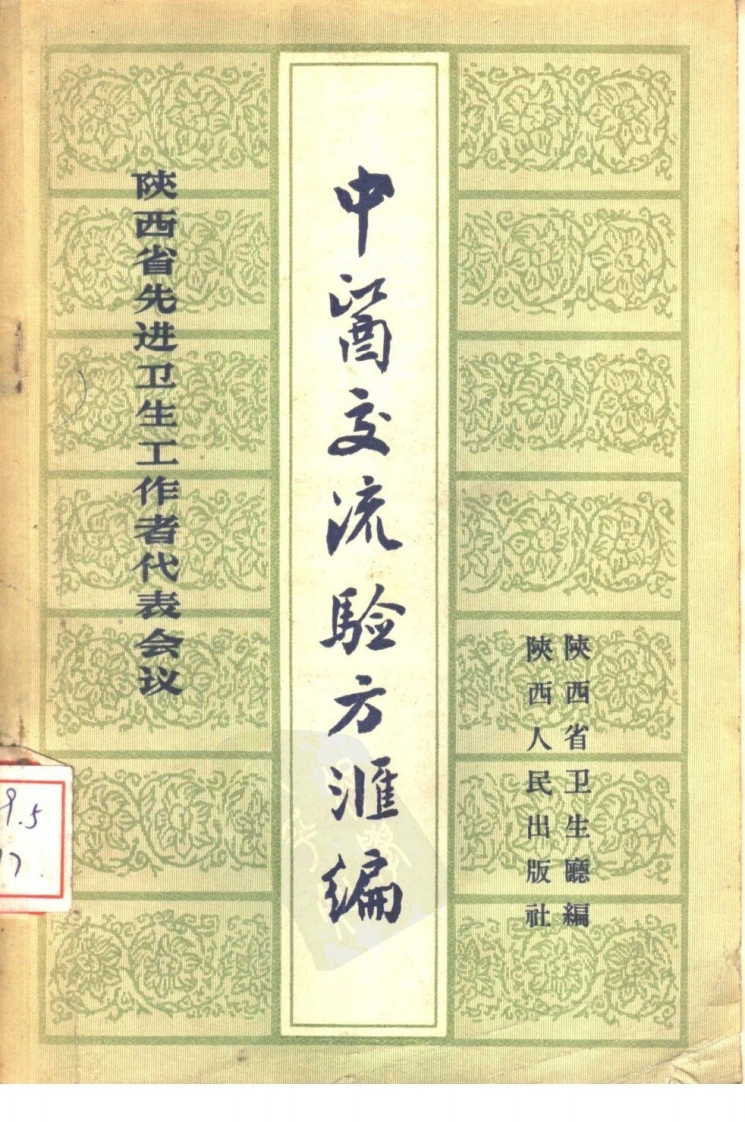 陝西省卫生廳編
陝西人民出版社
中醫交流驗方滙編
陝西省先进卫生工作者代表会议
9.5